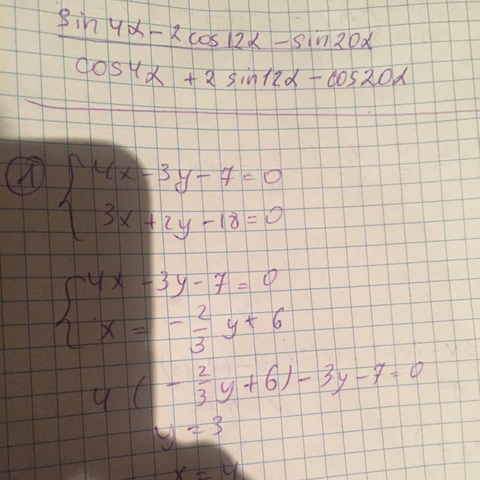 sin4α - 2cos12α - sin20α
cos4α + 2sin12α - cos20α
① { 4x - 3y - 7 = 0
3x + 2y - 18 = 0
{ 4x - 3y - 7 = 0
x = - 2/3 y + 6
4 ( - 2/3 y + 6) - 3y - 7 = 0
y = 3
x = 4